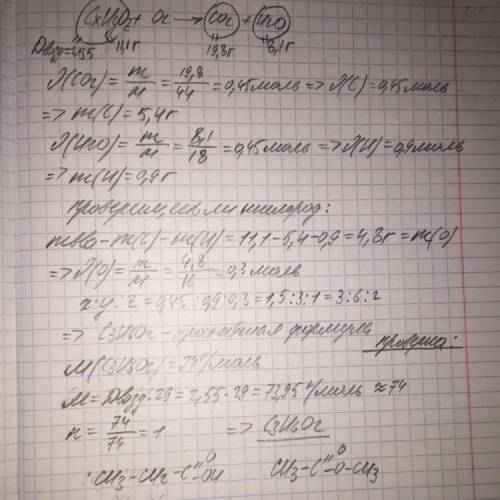 CxHyO2 + O2 → CO2 + H2O
Dвозд=2,55 11,1г 19,8г 8,1г
λ(CO2) = m/M = 19,8/44 = 0,45моль => λ(C) = 0,45моль
=> m(C) = 5,4г
λ(H2O) = m/M = 8,1/18 = 0,45моль => λ(H) = 0,9моль
=> m(H) = 0,9г
проверим есть ли кислород:
mв-ва - m(C) - m(H) = 11,1 - 5,4 - 0,9 = 4,8г = m(O)
=> λ(O) = m/M = 4,8/16 = 0,3моль
x:y:z = 0,45:0,9:0,3 = 1,5:3:1 = 3:6:2
=> C3H6O2 - простейшая формула
проверка:
M(C3H6O2) = 74г/моль
M = Dвозд·29 = 2,55·29 = 73,95г/моль ≈ 74
n = 74/74 = 1 => C3H6O2
CH3-CH2-C=O-OH CH3-C=O-O-CH3